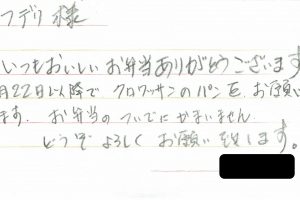 フデリ 様
いつもおいしいお弁当ありがとうございます
月22日以降で クロワッサンのパンを、お願い
ます。 お弁当のついでにかまいません。
どうぞ よろしく お願い致します。